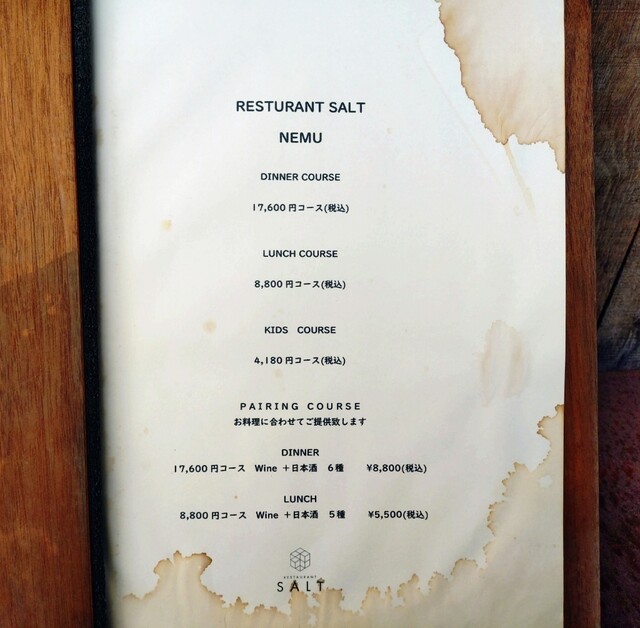 RESTURANT SALT
NEMU
DINNER COURSE
17,600円コース(税込)
LUNCH COURSE
8,800円コース(税込)
KIDS COURSE
4,180円コース(税込)
PAIRING COURSE
お料理に合わせてご提供致します
DINNER
17,600円コース Wine +日本酒 6種 ¥8,800(税込)
LUNCH
8,800円コース Wine +日本酒 5種 ¥5,500(税込)
RESTAURANT
SALT